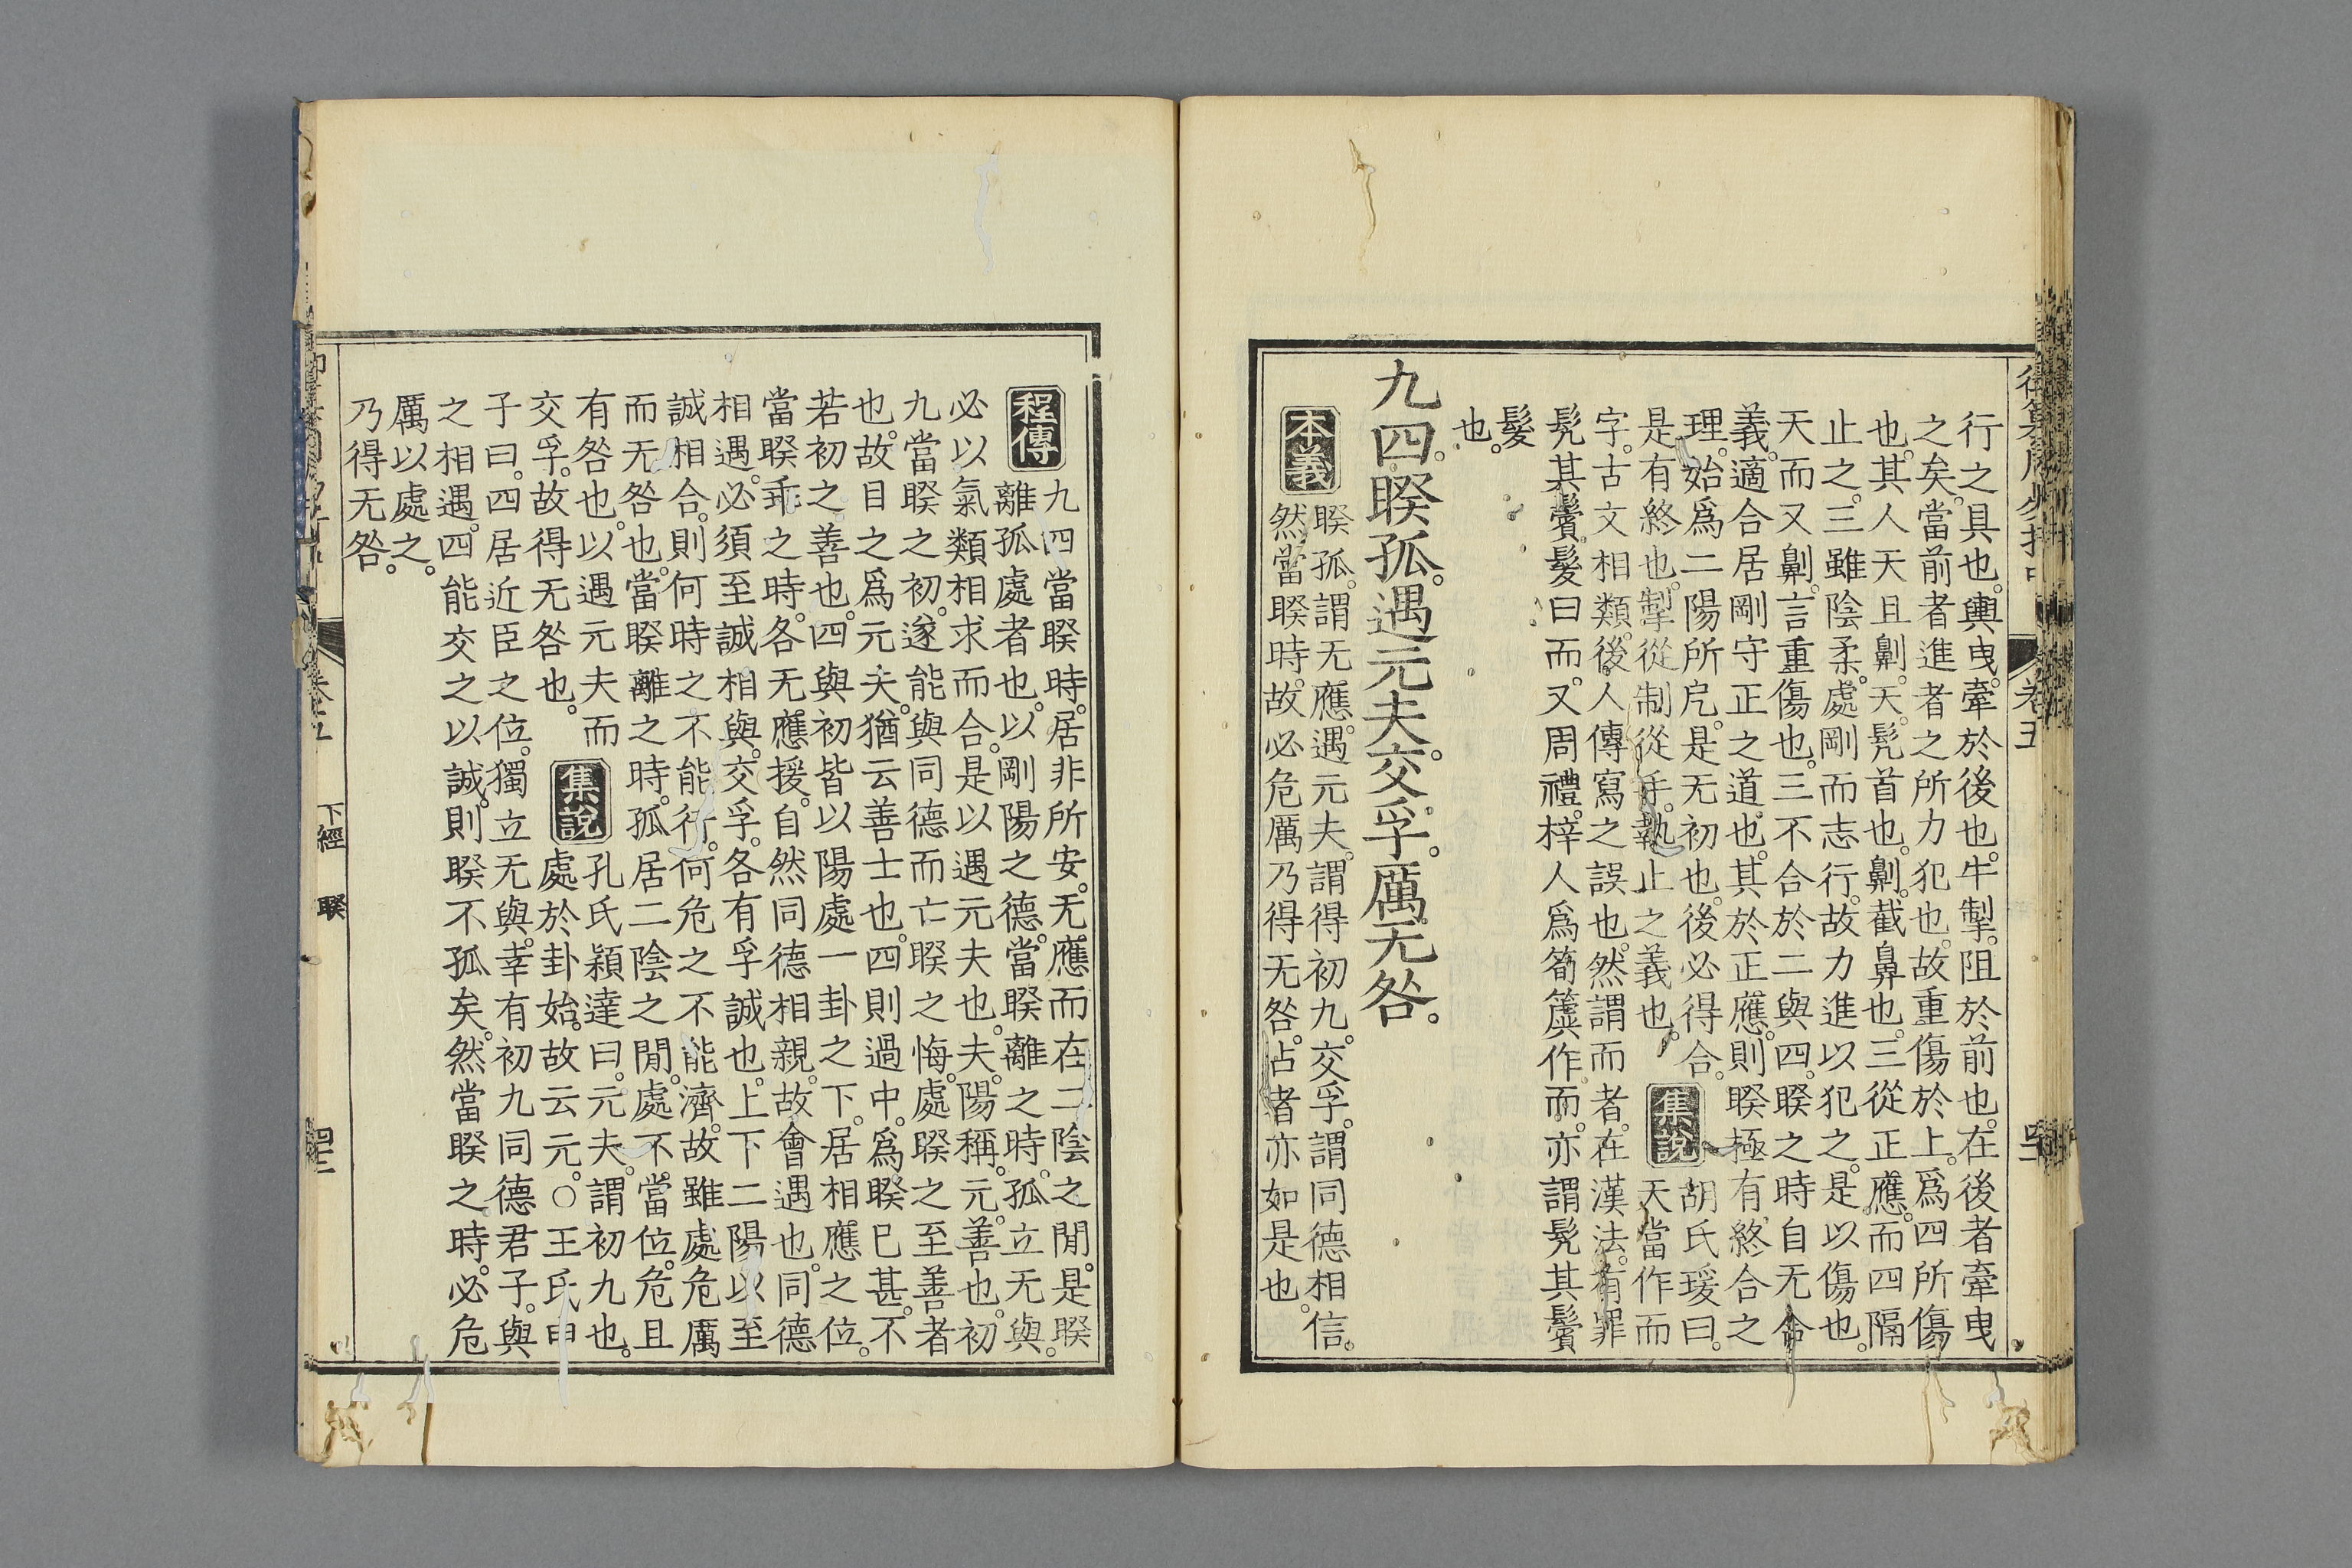 行之具也。輿曳。牽於後也。牛掣。阻於前也。在後者牽曳
之矣。當前者進者之所力犯也。故重傷於上。爲四所傷
也。其人天且劓。天。髡首也。劓。截鼻也。三從正應。而四隔
止之。三雖陰柔。處剛而志行。故力進以犯之。是以傷也。
天而又劓。言重傷也。三不合於二與四。睽之時自无合
義。適合居剛守正之道也。其於正應。則睽極有終合之
理。始爲二陽所戹。是无初也。後必得合。
是有終也。掣從制從手。執止之義也。
集說
胡氏瑗曰。
天當作而
字。古文相類。後人傳寫之誤也。然謂而者。在漢法。有罪
髡其鬢髮曰而。又周禮。梓人爲筍簴。作而。亦謂髡其鬢
髮
也。
九四。睽孤。遇元夫。交孚。厲无咎。
本義
睽孤。謂无應。遇元夫。謂得初九。交孚。謂同德相信。
然當睽時。故必危厲乃得无咎。占者亦如是也。
卷五
程傳
九四當睽時。居非所安。无應而在二陰之閒。是睽
離孤處者也。以剛陽之德。當睽離之時。孤立无與。
必以氣類相求而合。是以遇元夫也。夫。陽稱。元。善也。初
九當睽之初。遂能與同德而亡睽之悔。處睽之至善者
也。故目之爲元夫。猶云善士也。四則過中。爲睽已甚。不
若初之善也。四與初皆以陽處一卦之下。居相應之位。
當睽乖之時。各无應援。自然同德相親。故會遇也。同德
相遇。必須至誠相與。交孚。各有孚誠也。上下二陽以至
誠相合。則何時之不能行。何危之不能濟。故雖處危厲
而无咎也。當睽離之時。孤居二陰之閒。處不當位。危且
有咎也。以遇元夫而
交孚。故得无咎也。
集說
孔氏穎達曰。元夫。謂初九也。
處於卦始。故云元。○王氏申
子曰。四居近臣之位。獨立无與。幸有初九同德君子。與
之相遇。四能交之以誠。則睽不孤矣。然當睽之時。必危
厲以處之。
乃得无咎。
下經 睽